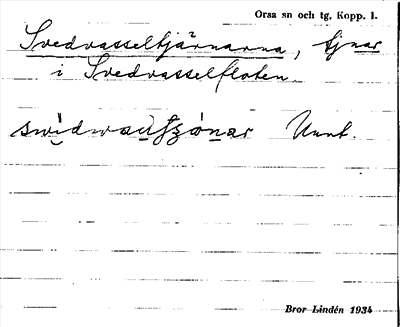 Orsa sn och tg, Kopp. l.
Svedvasseltjärnarna, tjnar
i Svedvasselfloten.
Bror Lindén 1934